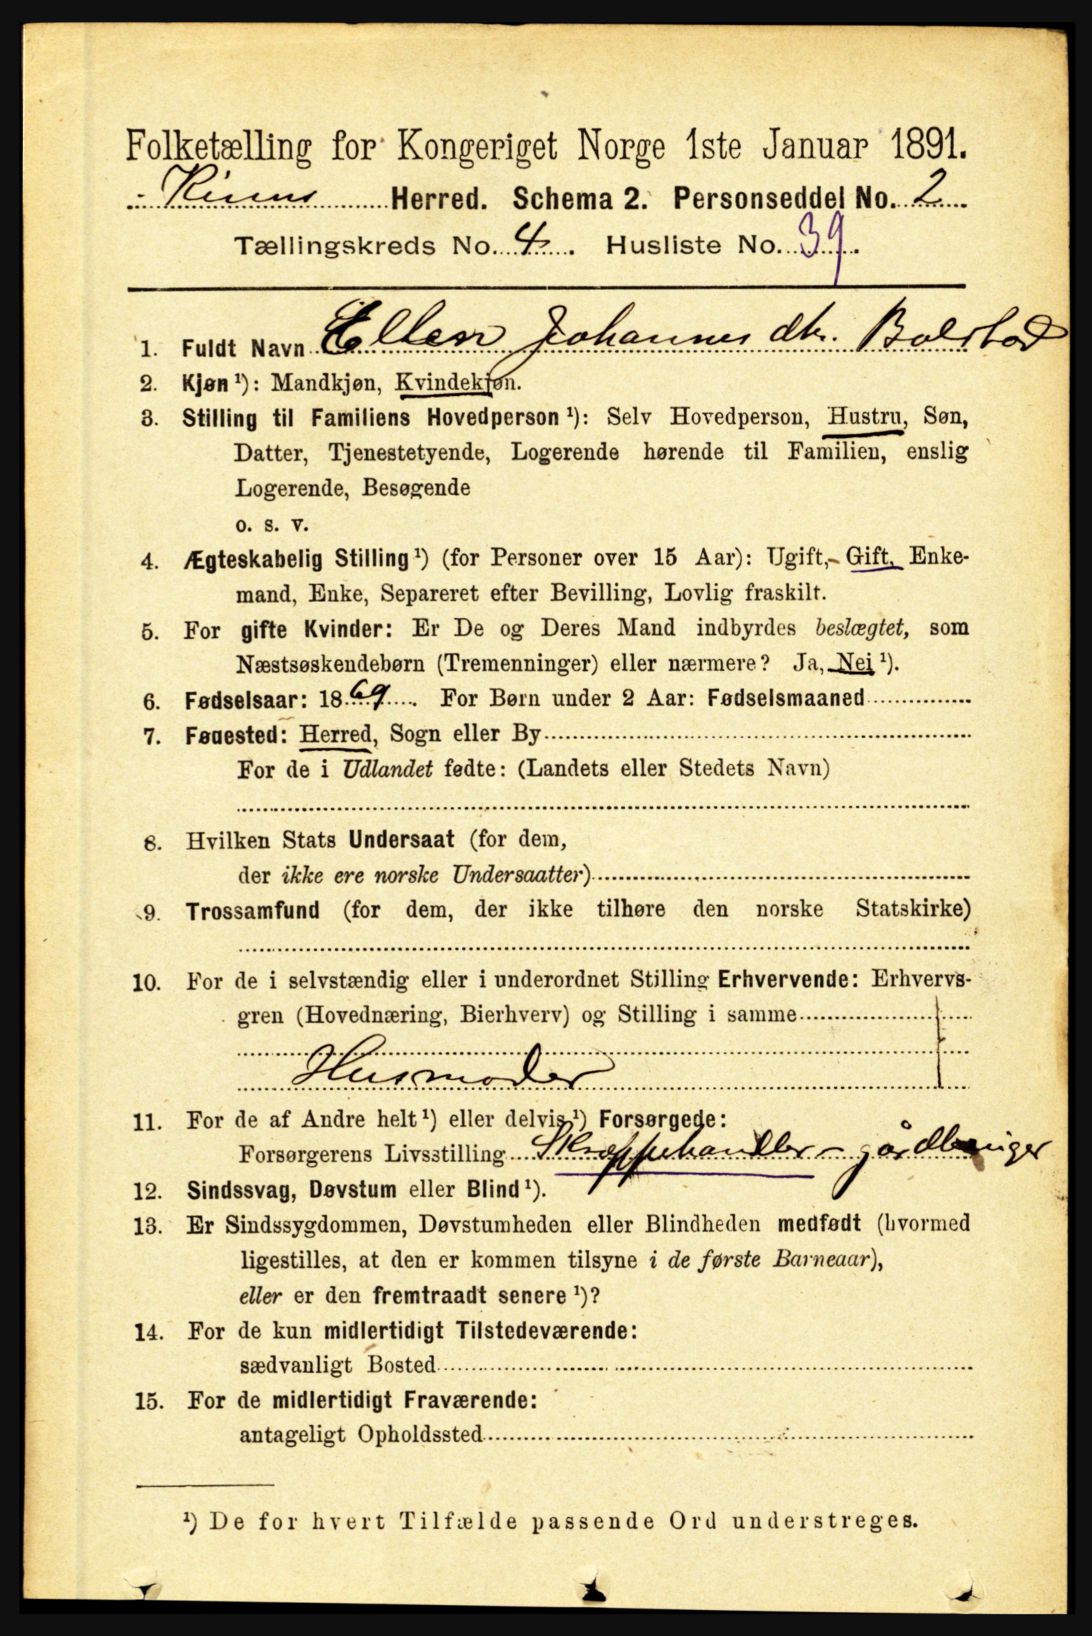 Folketælling for Kongeriget Norge 1ste Januar 1891.
Kinns Herred. Schema 2. Personseddel No. 2
Tællingskreds No. 4. Husliste No. 39.
1. Fuldt Navn Ellen Johannesdtr. Bolstad
2. Kjøn ¹): Mandkjøn, Kvindekjøn.
3. Stilling til Familiens Hovedperson ¹): Selv Hovedperson, Hustru, Søn,
Datter, Tjenestetyende, Logerende hørende til Familien, enslig
Logerende, Besøgende
o. s. v.
4. Ægteskabelig Stilling ¹) (for Personer over 15 Aar): Ugift, Gift, Enke-
mand, Enke, Separeret efter Bevilling, Lovlig fraskilt.
5. For gifte Kvinder: Er De og Deres Mand indbyrdes beslægtet, som
Næstsøskendebørn (Tremenninger) eller nærmere? Ja, Nei ¹).
6. Fødselsaar: 1869. For Børn under 2 Aar: Fødselsmaaned
7. Føuested: Herred, Sogn eller By
For de i Udlandet fødte: (Landets eller Stedets Navn)
8. Hvilken Stats Undersaat (for dem,
der ikke ere norske Undersaatter)
9. Trossamfund (for dem, der ikke tilhøre den norske Statskirke)
10. For de i selvstændig eller i underordnet Stilling Erhvervende: Erhvervs-
gren (Hovednæring, Bierhverv) og Stilling i samme
Husmoder
11. For de af Andre helt ¹) eller delvis ¹) Forsørgede:
Forsørgerens Livsstilling Skræppehandler - gårdbruger
12. Sindssvag, Døvstum eller Blind ¹).
13. Er Sindssygdommen, Døvstumheden eller Blindheden medfødt (hvormed
ligestilles, at den er kommen tilsyne i de første Barneaar),
eller er den fremtraadt senere ¹)?
14. For de kun midlertidigt Tilstedeværende:
sædvanligt Bosted
15. For de midlertidigt Fraværende:
antageligt Opholdssted
¹) De for hvert Tilfælde passende Ord understreges.